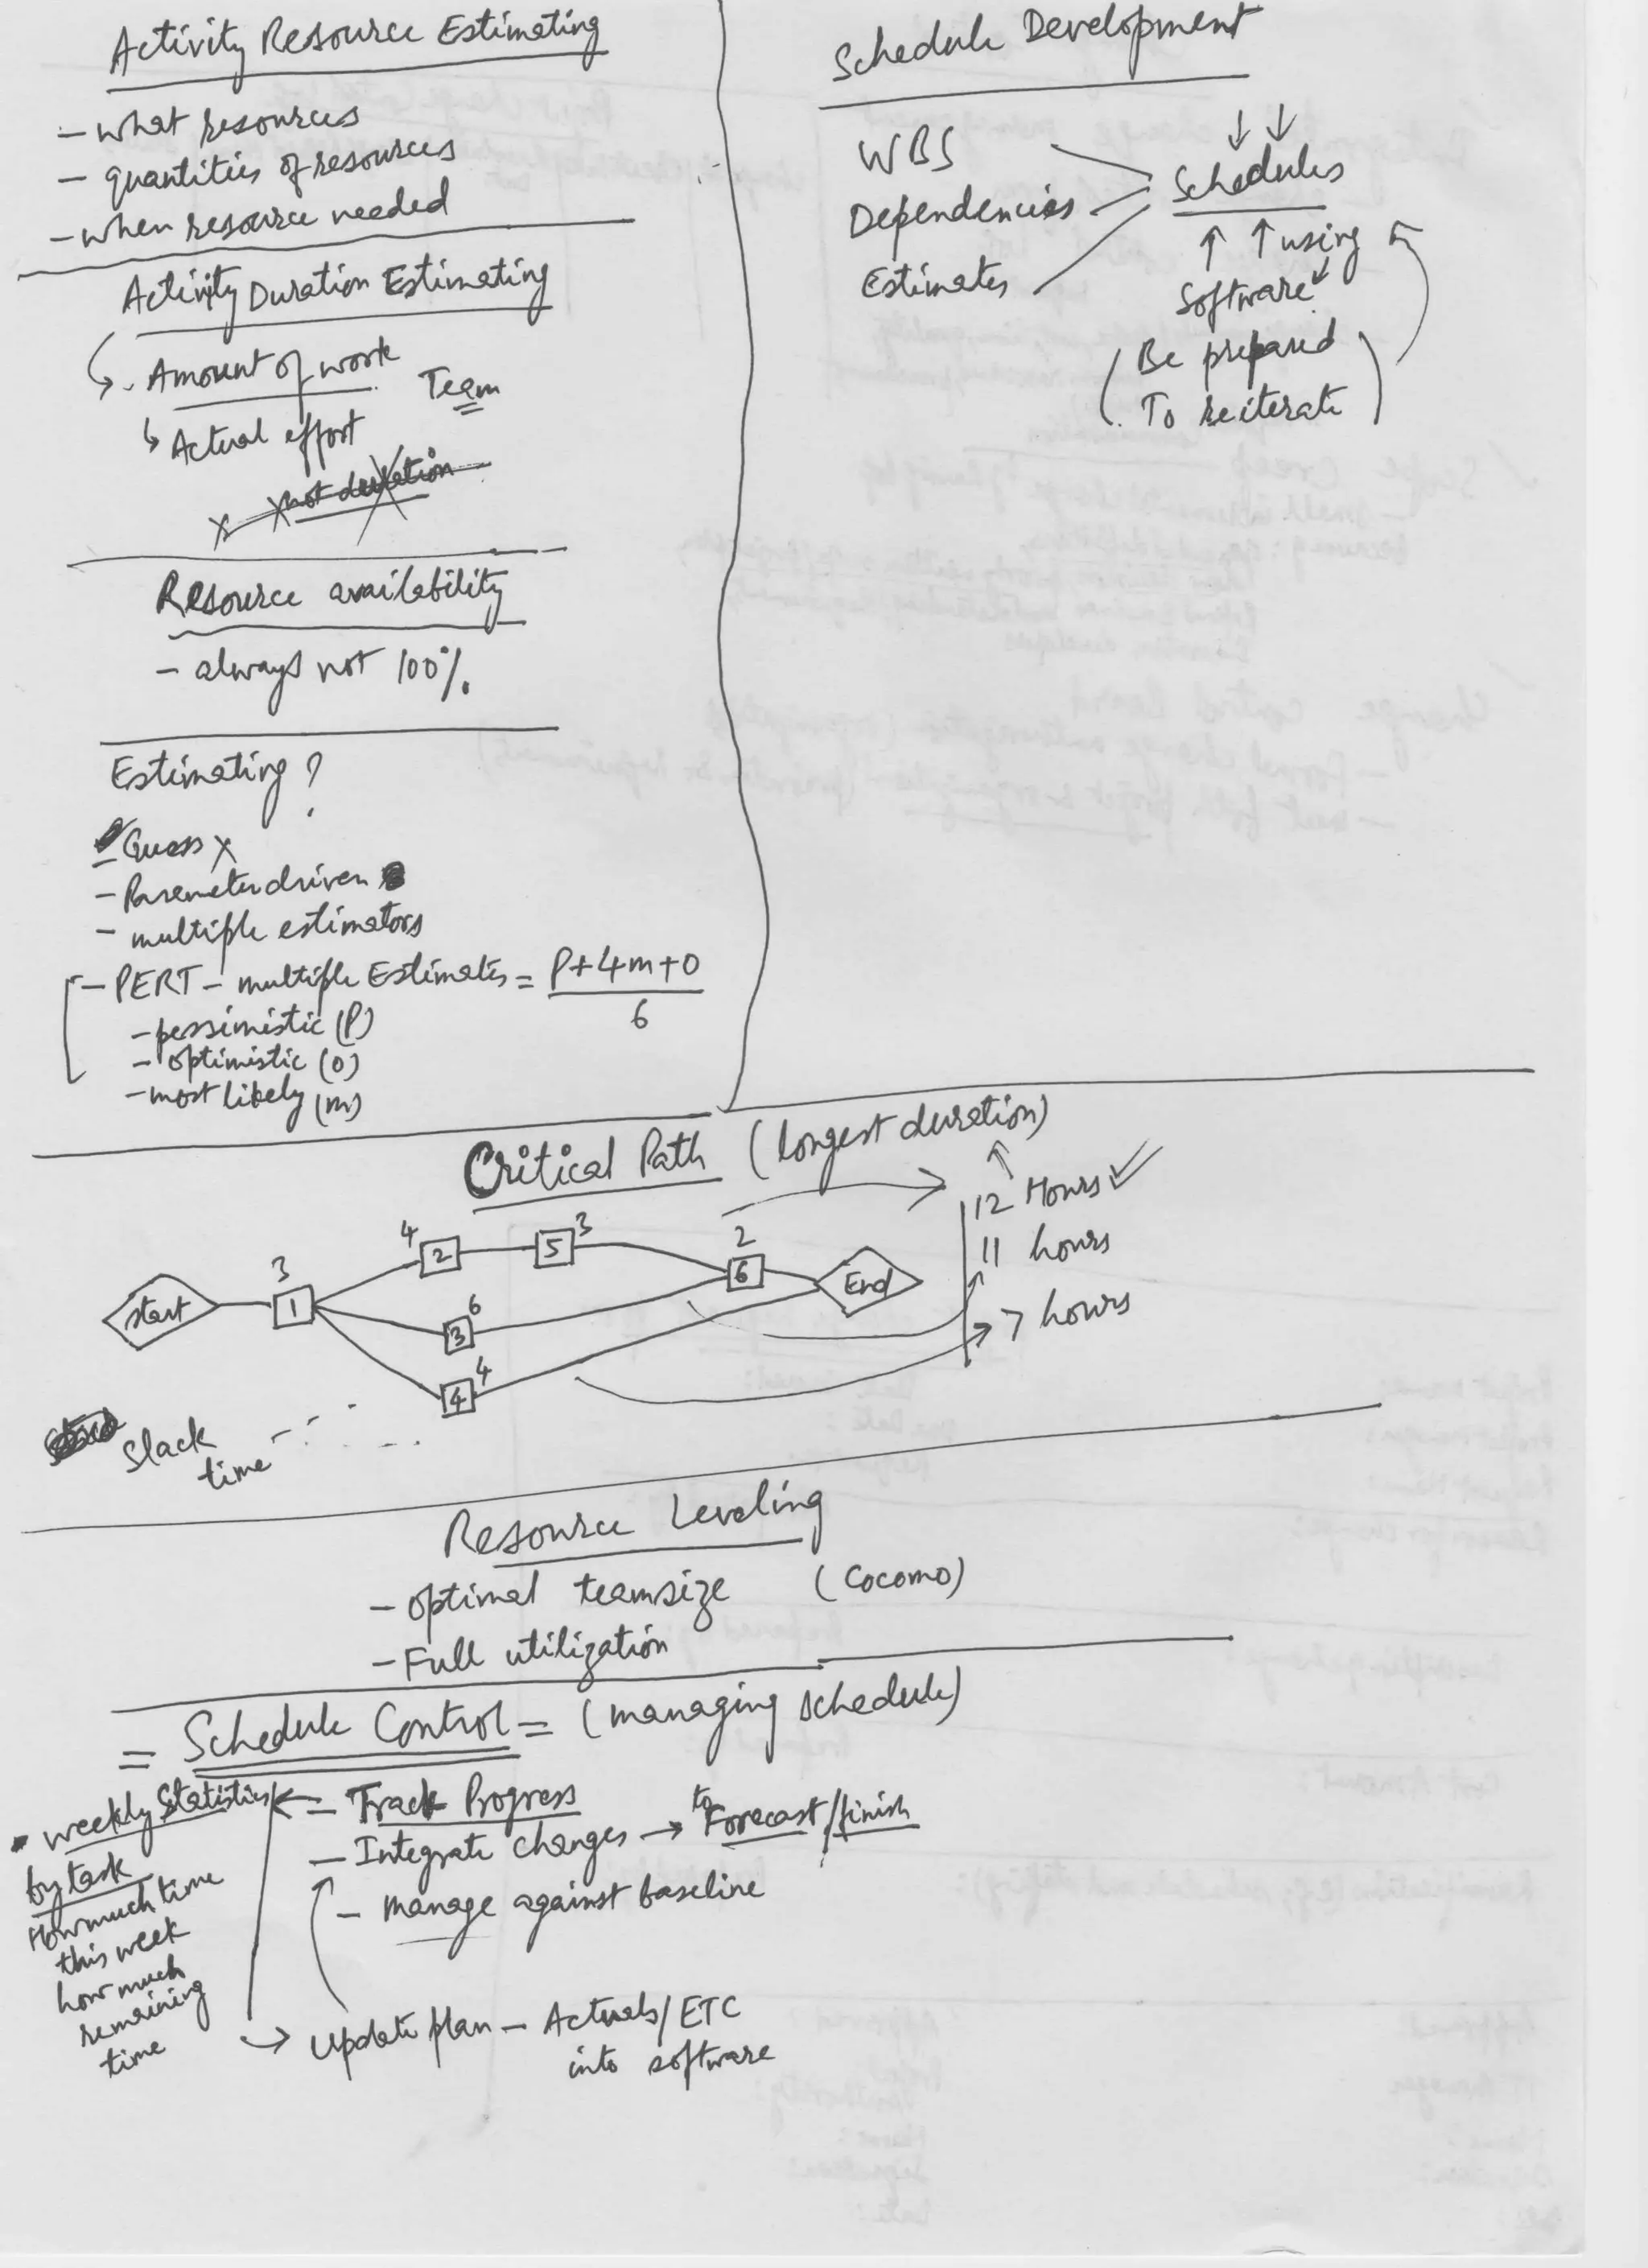 Activity Resource Estimating
- what resources
- quantities of resources
- when resource needed
Activity Duration Estimating
- Amount of work
Team
Actual effort
x x not duration
Resource availability
- always not 100%.
Estimating?
- Guess x
- Parameter driven
- multiple estimators
- PERT - multiple Estimates = P+4m+O
6
- pessimistic (P)
- optimistic (O)
- most likely (m)
Schedule Development
WBS
Dependencies
Estimates
Schedules
using
Software
(Be prepared
To reiterate)
Critical Path (longest duration)
12 Hours ✓
11 hours
7 hours
start
3
1
4
2
5
3
2
6
End
6
3
4
4
Slack
time
Resource Leveling
- Optimal teamsize (Cocomo)
- Full utilization
= Schedule Control = (managing schedule)
- Track Progress
- Integrate changes → to Forecast/finish
- manage against baseline
weekly Statistics
by task
How much time
this week
how much
remaining
time
→ update plan - Actuals/ETC
into software